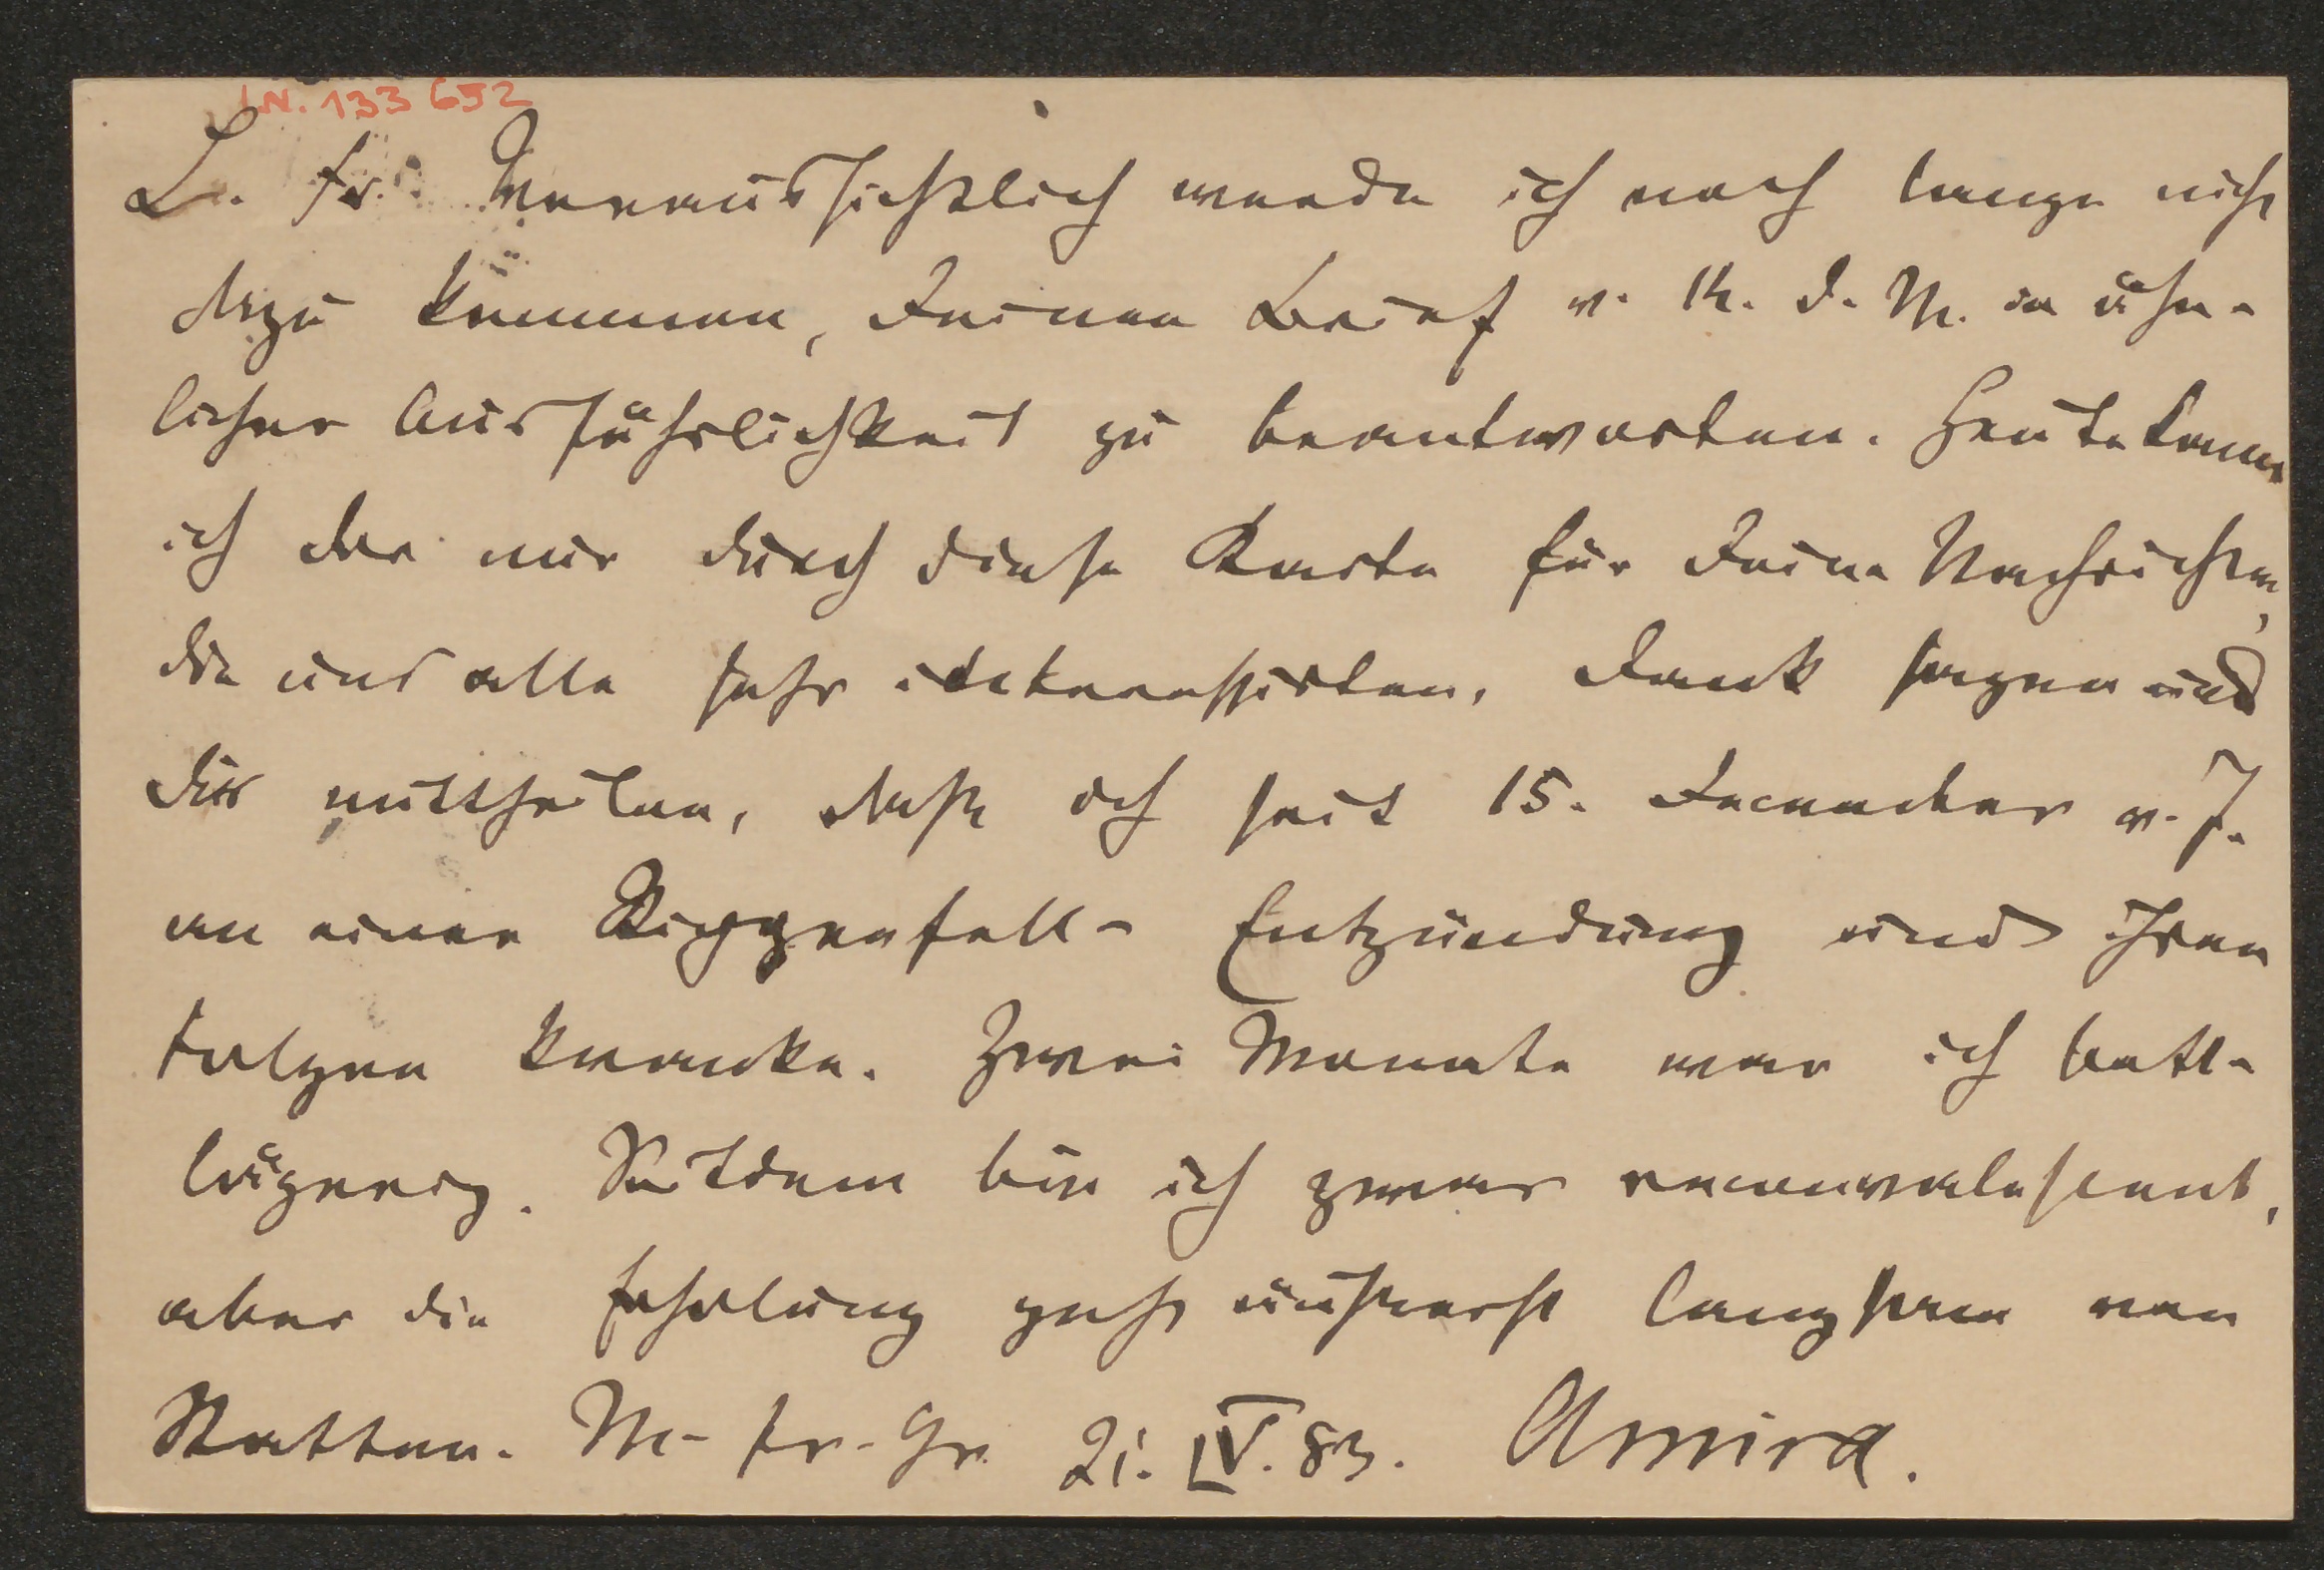 I.N. 133 652
L. Fr. Voraussichtlich werde ich noch lange nicht
dazu kommen, Deinen Brief v. 14. d. M. in ähn-
licher Ausführlichkeit zu beantworten. Heute kann
ich dir nur durch diese Karte für Deine Nachrichten,
die uns alle sehr interessirten, Dank sagen und
dir mittheilen, dass ich seit 15. December v. J.
an einer Rippenfell-Entzündung und ihren
Folgen kranke. Zwei Monate war ich bett-
lägerig. Seitdem bin ich zwar reconvalescent,
aber die Erholung geht äusserst langsam von
Statten. M. fr. Gr. 21. IV. 83. Amira.